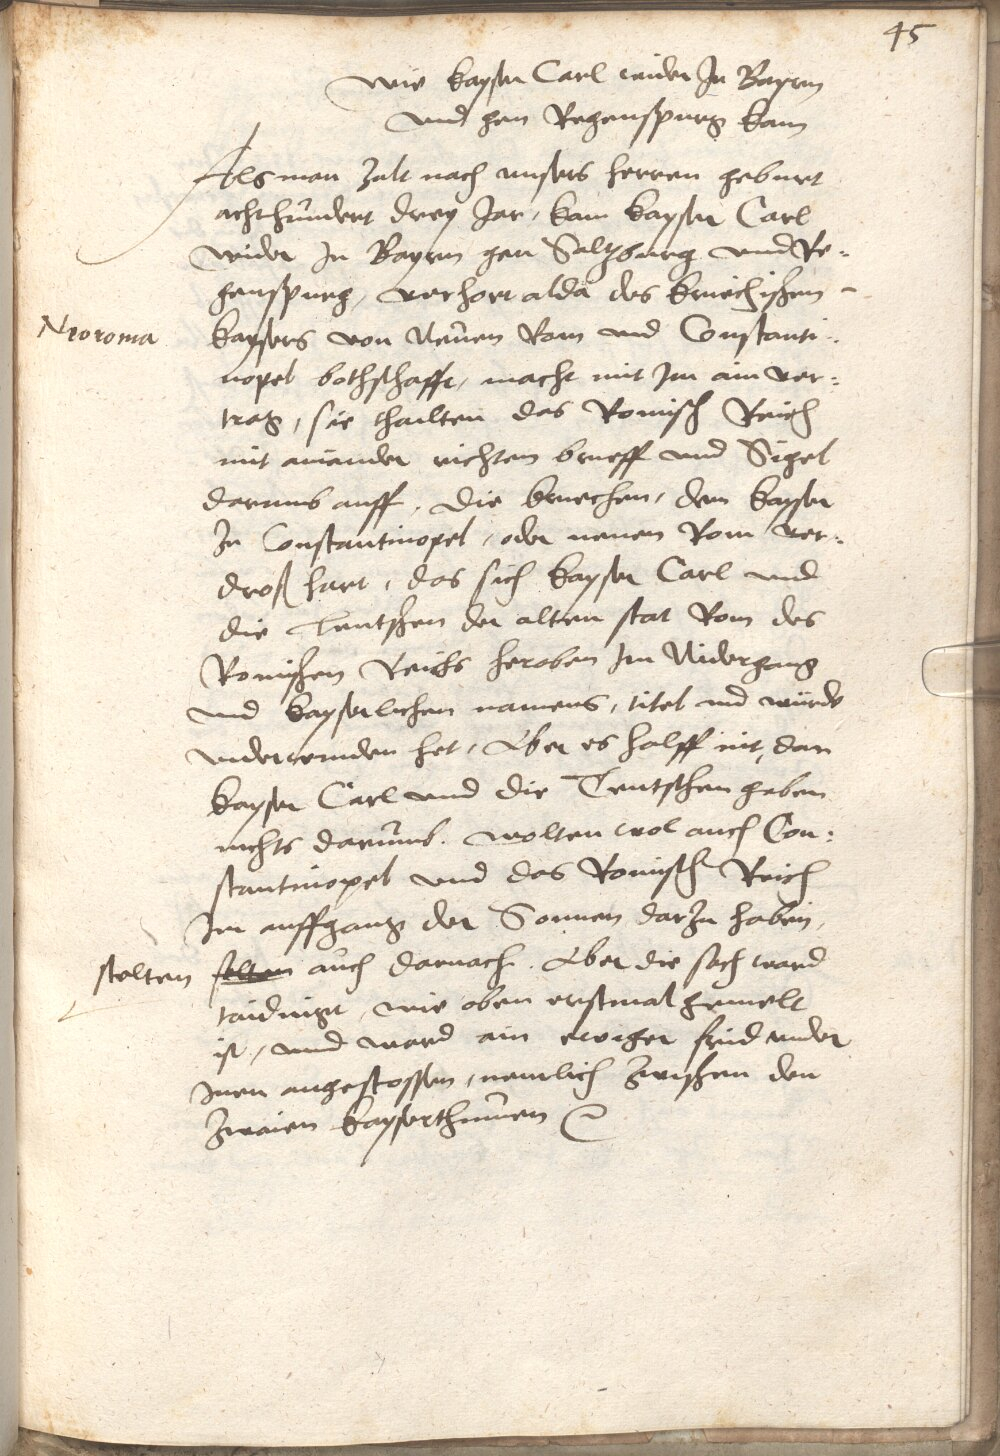 45
wie kayser Carl wider In Bayrn
und gen Regenspurg kam
Als man zalt nach unsers herren geburt
achthundert drey Jar, kam kayser Carl
wider In Bayrn gen Saltzburg und Re-
genspurg, verhort alda des kriechischen
Neoroma
kaysers von Neuen Rom und Constanti-
nopel bothschafft, macht mit Im ain ver-
trag, sie thailten das Romisch Reich
mit ainander richten brieff und Sigel
darumb auff, Die kriechen, dem kayser
In Constantinopel, oder neuen Rom ver-
droß hart, das sich kayser Carl und
die Teutschen der alten stat Rom des
Romischen Reichs heroben Im Nidergang
und kayserlichen namens, titel und würde
underwunden het, Aber es halff nit, dan
kayser Carl und die Teutschen gaben
nichts darumb. wolten wol auch Con-
stantinopel und das Romisch Reich
Im auffgang der Sonnen darzu haben,
stelten
selten auch darnach. Aber die sach ward
taidingt, wie oben erstmal gemelt
ist, und ward ain ewiger frid under
Inen angestossen, nemlich zwischen den
zwaien kayserthumen